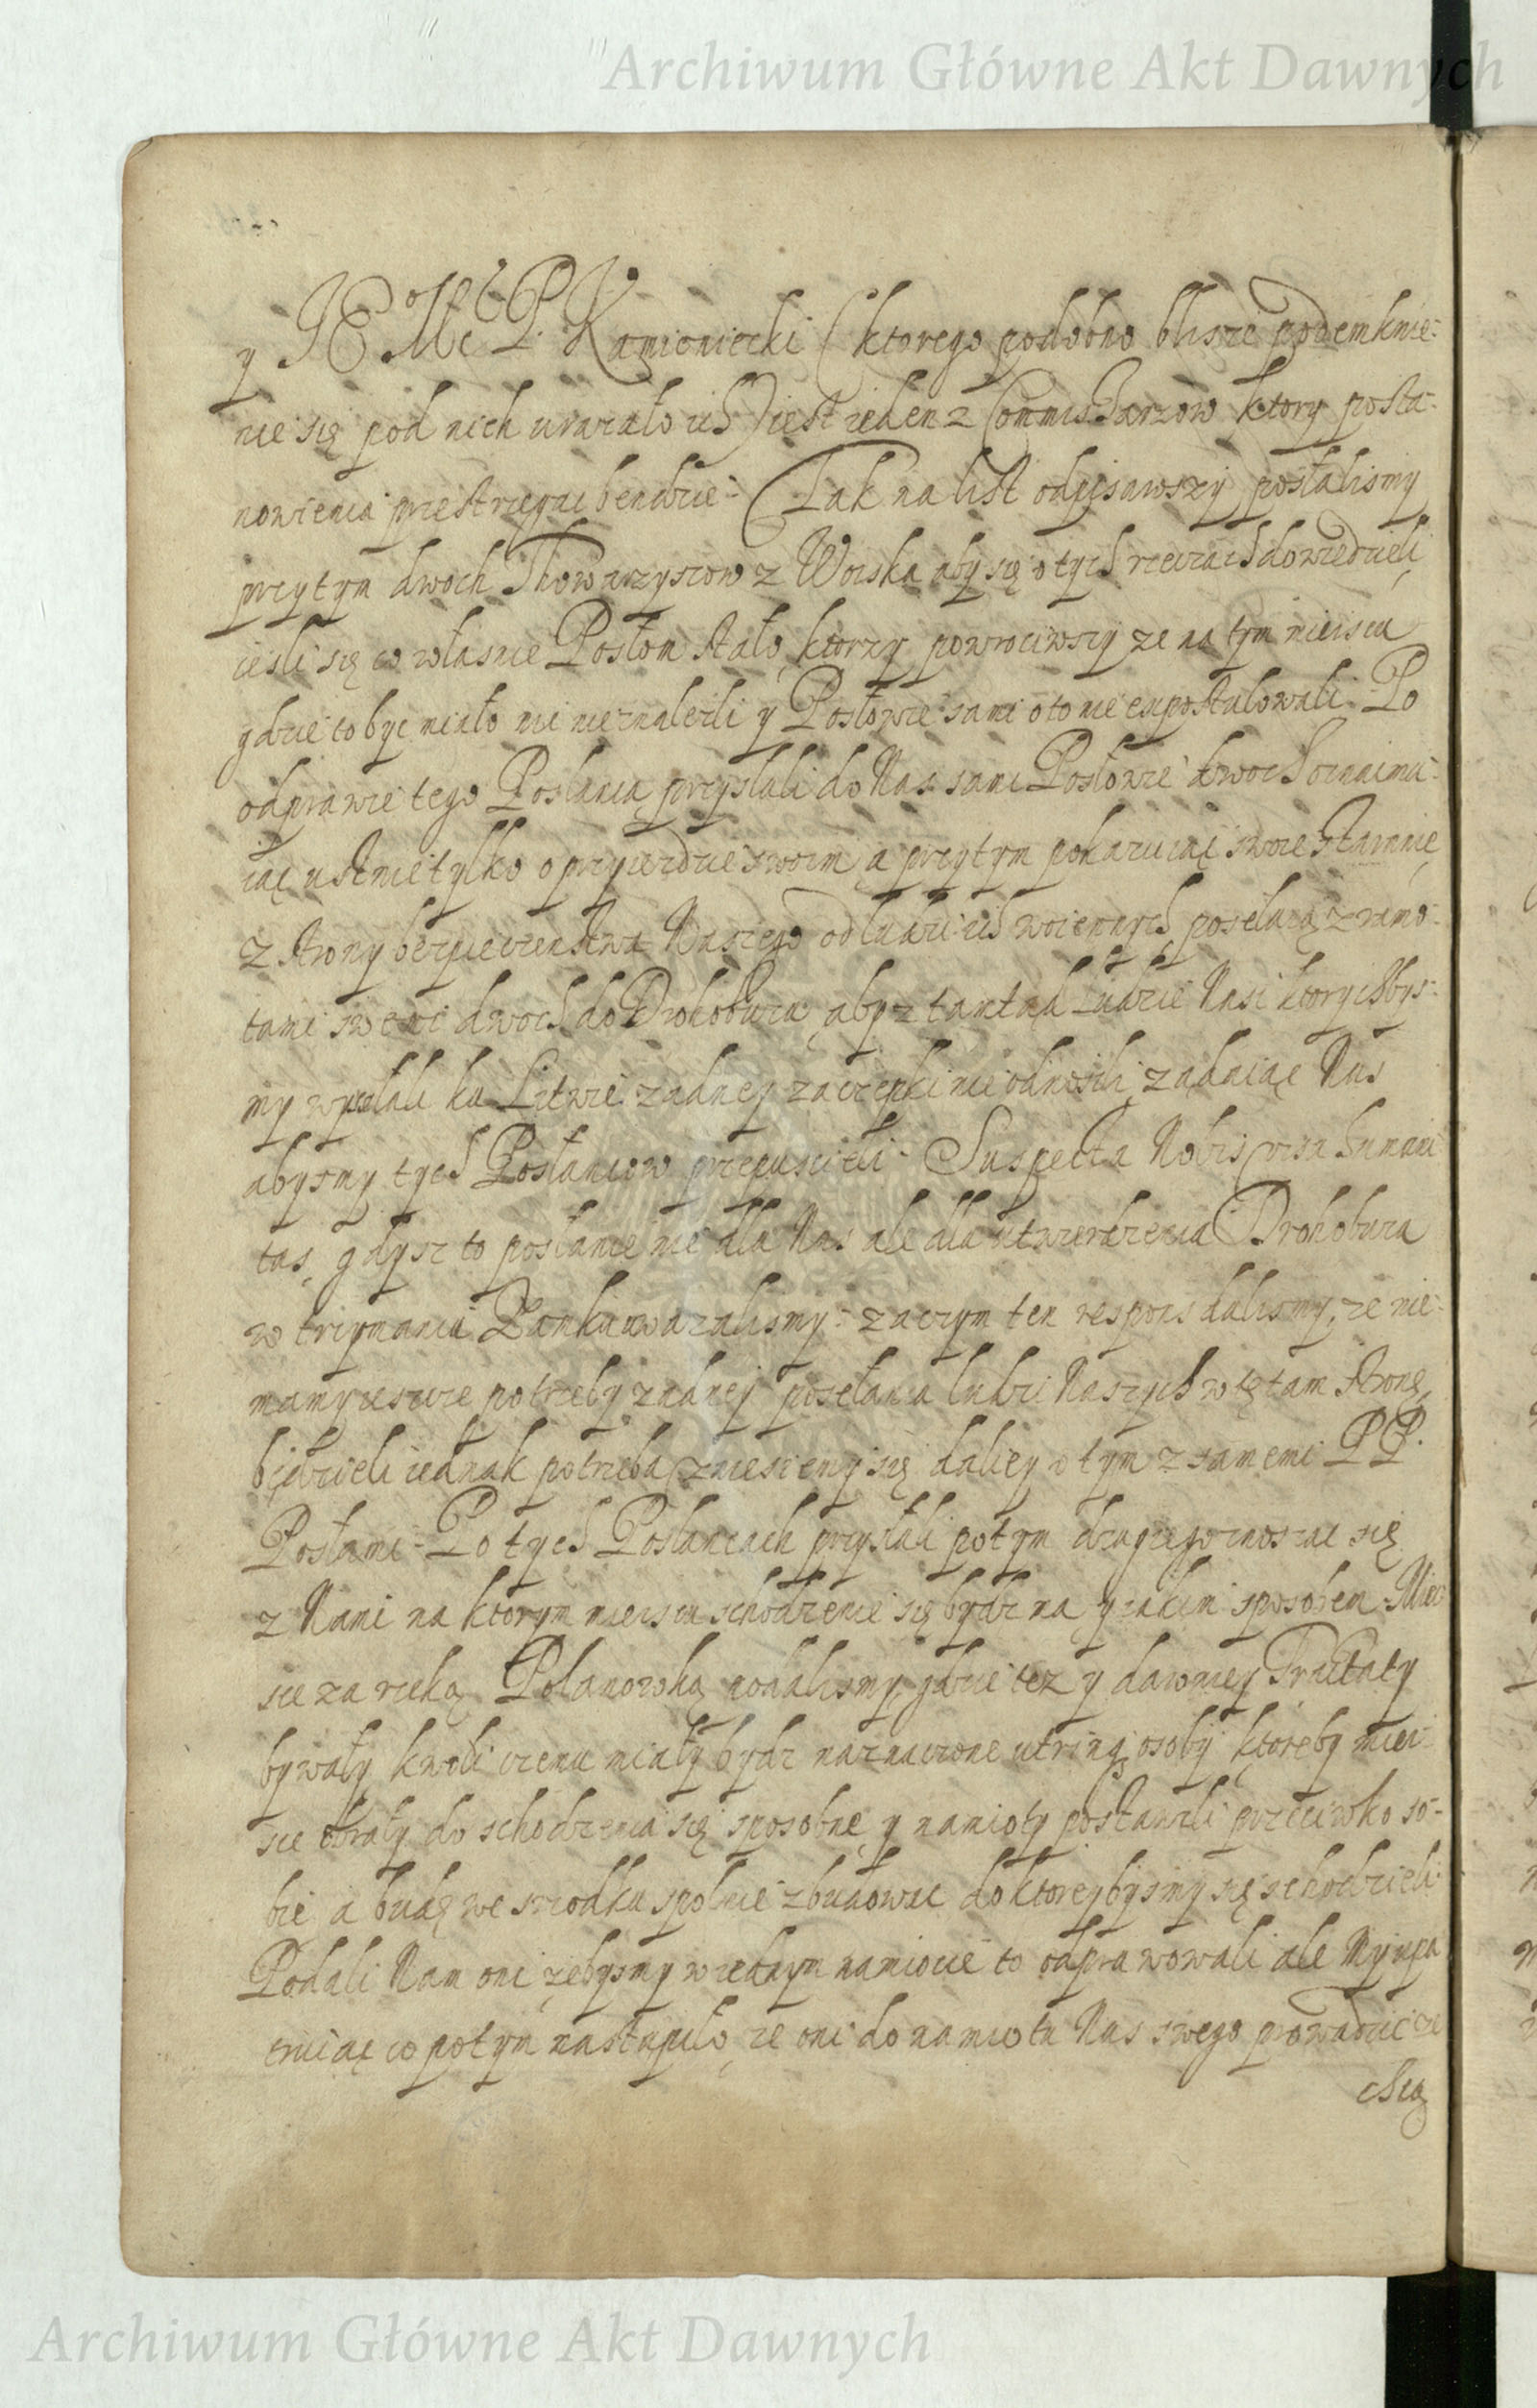 Archiwum Główne Akt Dawnych
y JE Mć P. Kamieniecki (ktorego podobno blisze podemknie-
nie się pod nich urazało ich) iest ieden z Commissarzow ktory posta-
nowienia przestrzegac bendzie- Tak na list odpisawszy posłalismy
przytym dwoch Thowarzyszow z Woiska aby się o tych rzeczach dowiedzieli
iesli się co własnie Posłom stało, ktorzy powrociwszy ze na tym mieiscu
gdzie to byc miało nic nieznalezli y Posłowie sami o to nie expostulowali. Po
odprawie tego Posłania przysłali do Nas sami Posłowie dwoch oznaimu-
iąc ustnie tylko o przyiezdzie swoim a przytym pokazuiąc swoie staranie
z strony bezpieczenstwa Naszego od ludzi ich woiennych posełaią z ramo-
tami swemi dwoch do Drohobuza, aby z tamtąd Ludzie Nasi ktorychbys-
my wysłali ku Litwie zadney zaczepki nie odnosili, ządaiąc Nas
abysmy tych Posłancow przepuscieli- Suspecta Nobis visa humani-
tas, gdysz to posłanie nie dla Nas ale dla utwierdzenia Drohobuza
w trzymaniu Zamku uwazalismy- zaczym ten respons dalismy, ze nie-
mamy ieszcze potrzeby zadney posełania ludzi Naszych w tę tam stronę
będzieli iednak potrzeba zniesiemy się daliey o tym z samemi PP.
Posłami- Po tych Posłancach przysłali potym drugiego znosząc się
z Nami na ktorym mieiscu schodzenie się bydz ma y iakim sposobem- Miei
sce za rzeką Polanowką podalismy, gdzie tez y dawniey Tractaty
bywały kwoli czemu miały bydz naznaczone utrinq osoby, ktoreby miei-
sce obrały do schodzenia się sposobne y namioty postawili przeciwko so-
bie a budę we srzodku spolnie zbudowac do ktoreybysmy się schodzieli
Podali Nam oni żebysmy w iednym namiocie to odprawowali ale My upa
truiąc co potym nastąpiło, ze oni do namiotu Nas swego prowadzic
chcą
Archiwum Główne Akt Dawnych